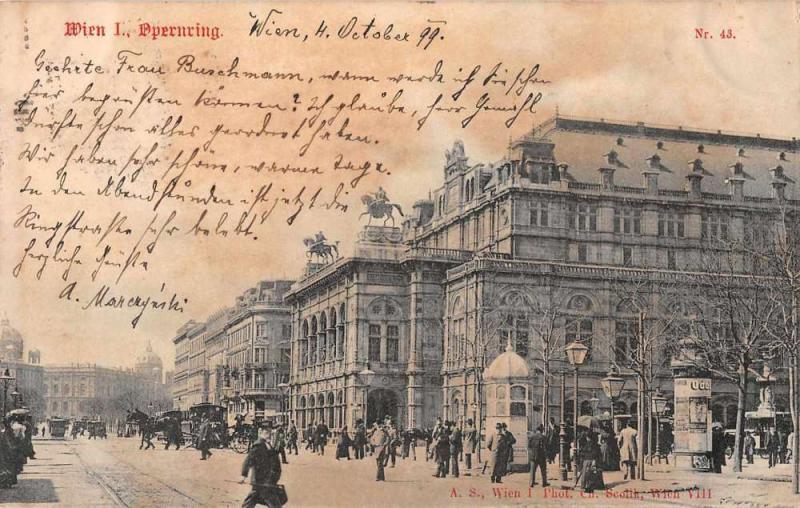 Wien I., Opernring.
Wien, 4. October 99.
Nr. 43.
Geehrte Frau Buschmann, wann werde ich Sie schon
hier begrüßen können? Ich glaube, Herr Gemahl
dürfte schon alles geordnet haben.
Wir haben sehr schöne, warme Tage.
In den Abendstunden ist jetzt die
Ringstraße sehr belebt.
Herzliche Grüße
A. Marczyński
A. S., Wien I Phot. Ch. Scolik, Wien VIII